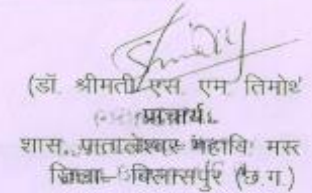 (डॉ. श्रीमती एस. एम. तिमोथ
प्राचार्य
शास. पातालेश्वर महावि. मस्त
जिला- बिलासपुर (छ.ग.)